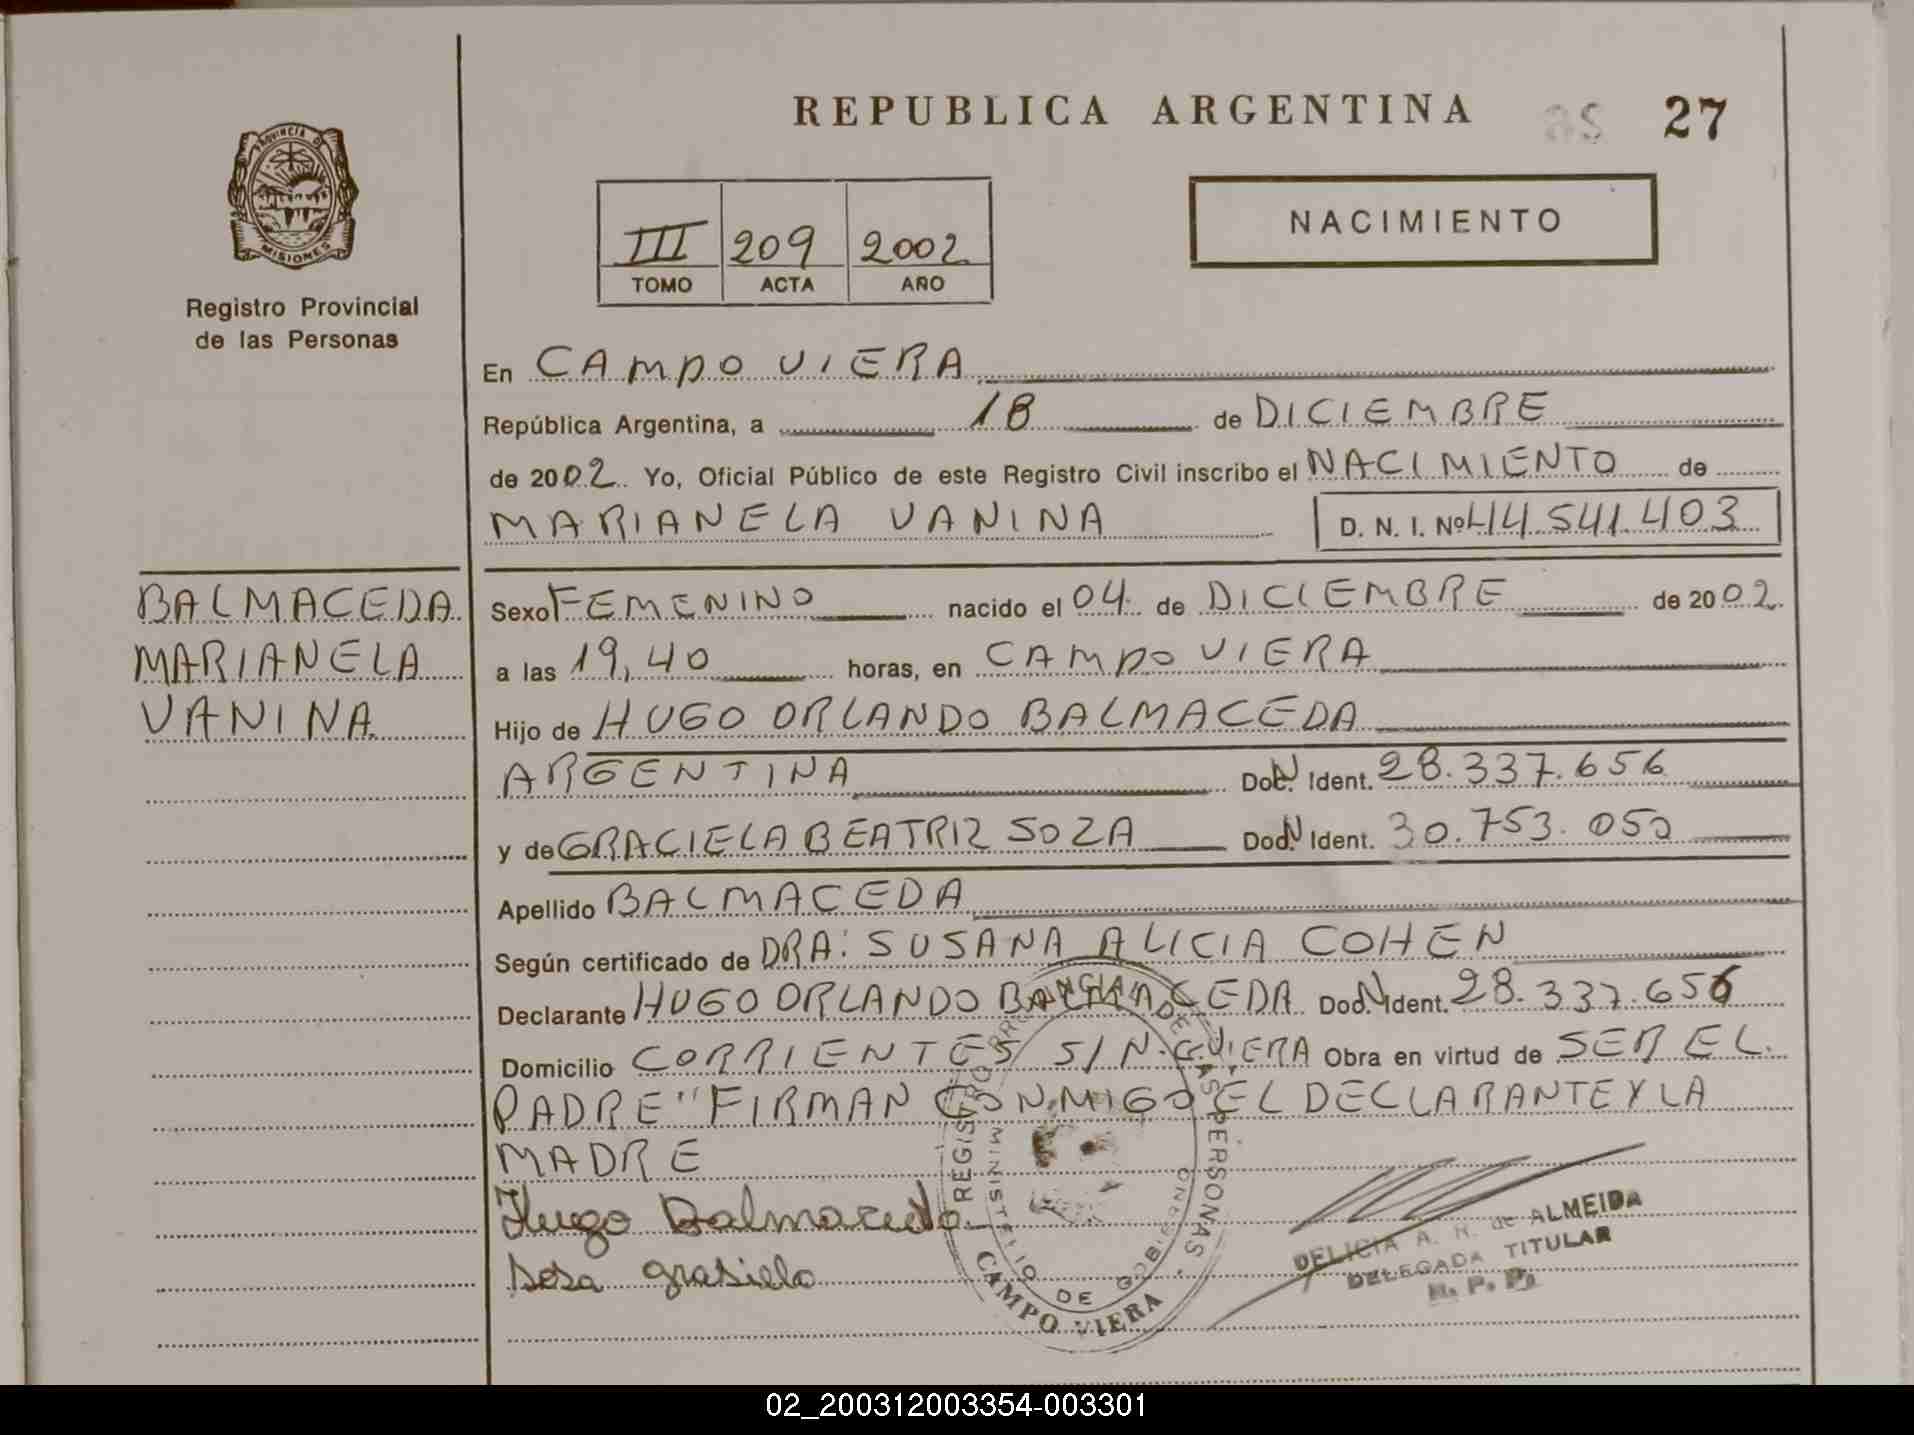 REPUBLICA ARGENTINA 27
PROVINCIA DE
MISIONES
Registro Provincial
de las Personas
NACIMIENTO
III 209 2002
TOMO ACTA AÑO
En CAMPO VIERA
República Argentina, a 18 de DICIEMBRE
de 2002 Yo, Oficial Público de este Registro Civil inscribo el NACIMIENTO de
MARIANELA VANINA D. N. I. Nº 44.541.403
BALMACEDA
MARIANELA
VANINA
Sexo FEMENINO nacido el 04 de DICIEMBRE de 2002
a las 19,40 horas, en CAMPO VIERA
Hijo de HUGO ORLANDO BALMACEDA
ARGENTINA Doc. N Ident. 28.337.656
y de GRACIELA BEATRIZ SOZA Doc. N Ident. 30.753.050
Apellido BALMACEDA
Según certificado de DRA: SUSANA ALICIA COHEN
Declarante HUGO ORLANDO BALMACEDA Doc. N Ident. 28.337.656
Domicilio CORRIENTES S/N. C. VIERA Obra en virtud de SER EL
PADRE" FIRMAN CONMIGO EL DECLARANTE Y LA
MADRE
Hugo Balmaceda
Sosa grasiela
REGISTRO PROVINCIAL DE LAS PERSONAS
MINISTERIO DE GOBIERNO
CAMPO VIERA
DELICIA A. H. de ALMEIDA
DELEGADA TITULAR
R. P. P.
02_200312003354-003301